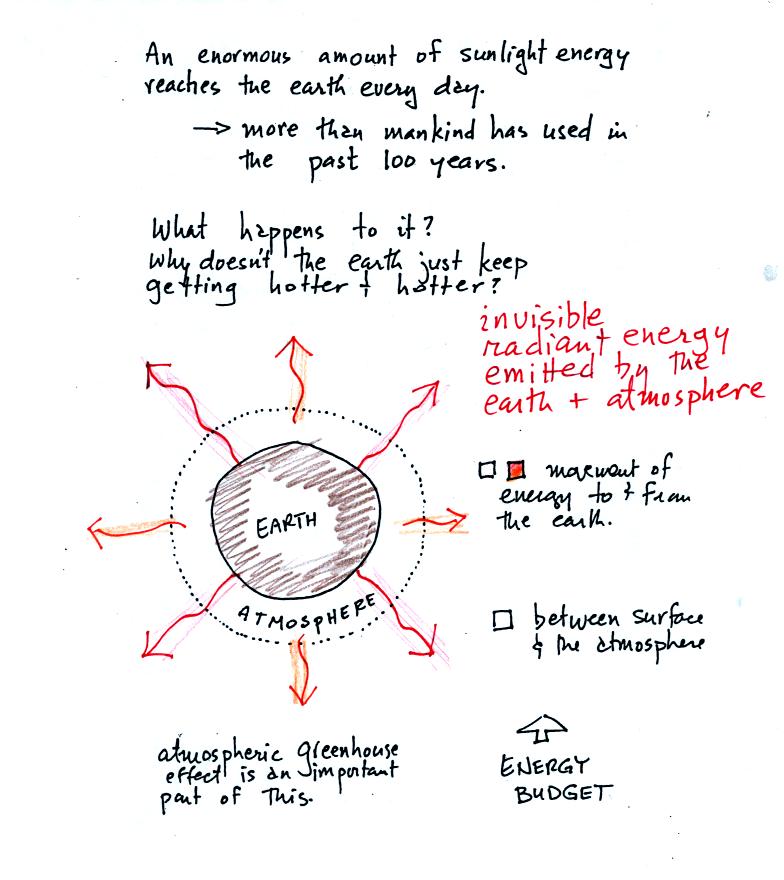 An enormous amount of sunlight energy
reaches the earth every day.
→ more than mankind has used in
the past 100 years.
What happens to it?
Why doesn't the earth just keep
getting hotter & hotter?
invisible
radiant energy
emitted by the
earth + atmosphere
movement of
energy to & from
the earth.
EARTH
ATMOSPHERE
between surface
& the atmosphere
atmospheric greenhouse
effect is an important
part of this.
ENERGY
BUDGET